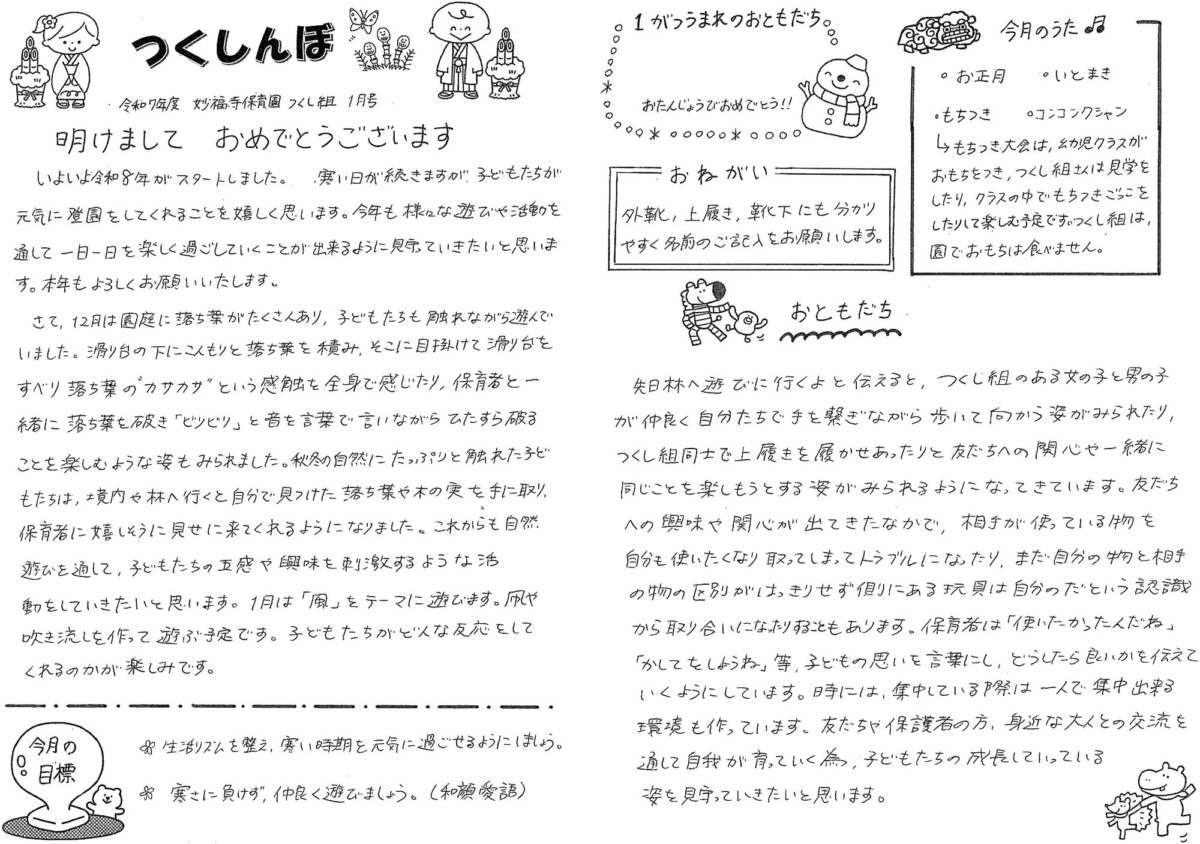 つくしんぼ
令和7年度 妙福寺保育園 つくし組 1月号
明けまして おめでとうございます
いよいよ令和8年がスタートしました。 寒い日が続きますが、子どもたちが
元気に登園をしてくれることを嬉しく思います。今年も様々な遊びや活動を
通して一日一日を楽しく過ごしていくことが出来るように見守っていきたいと思いま
す。本年もよろしくお願いいたします。
さて、12月は園庭に落ち葉がたくさんあり、子どもたちも触れながら遊んで
いました。滑り台の下にこんもりと落ち葉を積み、そこに目掛けて滑り台を
すべり落ち葉の"カサカサ"という感触を全身で感じたり、保育者と一
緒に落ち葉を破き「ビリビリ」と音を言葉で言いながらひたすら破る
ことを楽しむような姿もみられました。秋冬の自然にたっぷりと触れた子ど
もたちは、境内や林へ行くと自分で見つけた落ち葉や木の実を手に取り、
保育者に嬉しそうに見せに来てくれるようになりました。これからも自然
遊びを通して、子どもたちの五感や興味を刺激するような活
動をしていきたいと思います。1月は「風」をテーマに遊びます。凧や
吹き流しを作って遊ぶ予定です。子どもたちがどんな反応をして
くれるのかが楽しみです。
今月の
目標
生活リズムを整え、寒い時期を元気に過ごせるようにしましょう。
寒さに負けず、仲良く遊びましょう。(和顔愛語)
1がつうまれのおともだち
おたんじょうびおめでとう!!
おねがい
外靴、上履き、靴下にも分かり
やすく名前のご記入をお願いします。
今月のうた♫
。お正月 。いとまき
・もちつき 。コンコンクシャン
↳もちつき大会は、幼児クラスが
おもちをつき、つくし組さんは見学を
したり、クラスの中でもちつきごっこを
したりして楽しむ予定です。つくし組は、
園でおもちは食べません。
おともだち
林へ遊びに行くよと伝えると、つくし組のある女の子と男の子
が仲良く自分たちで手を繋ぎながら歩いて向かう姿がみられたり、
つくし組同士で上履きを履かせあったりと友だちへの関心や一緒に
同じことを楽しもうとする姿がみられるようになってきています。友だち
への興味や関心が出てきたなかで、相手が使っている物を
自分も使いたくなり取ってしまってトラブルになったり、まだ自分の物と相手
の物の区別がはっきりせず側にある玩具は自分のだという認識
から取り合いになったりすることもあります。保育者は「使いたかったんだね」
「かしてをしようね」等、子どもの思いを言葉にし、どうしたら良いかを伝えて
いくようにしています。時には、集中している際は一人で集中出来る
環境も作っています。友だちや保護者の方、身近な大人との交流を
通して自我が育っていく為、子どもたちの成長していっている
姿を見守っていきたいと思います。